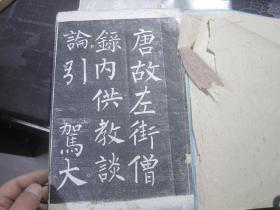 唐故左街僧
錄内供教談
論引駕大